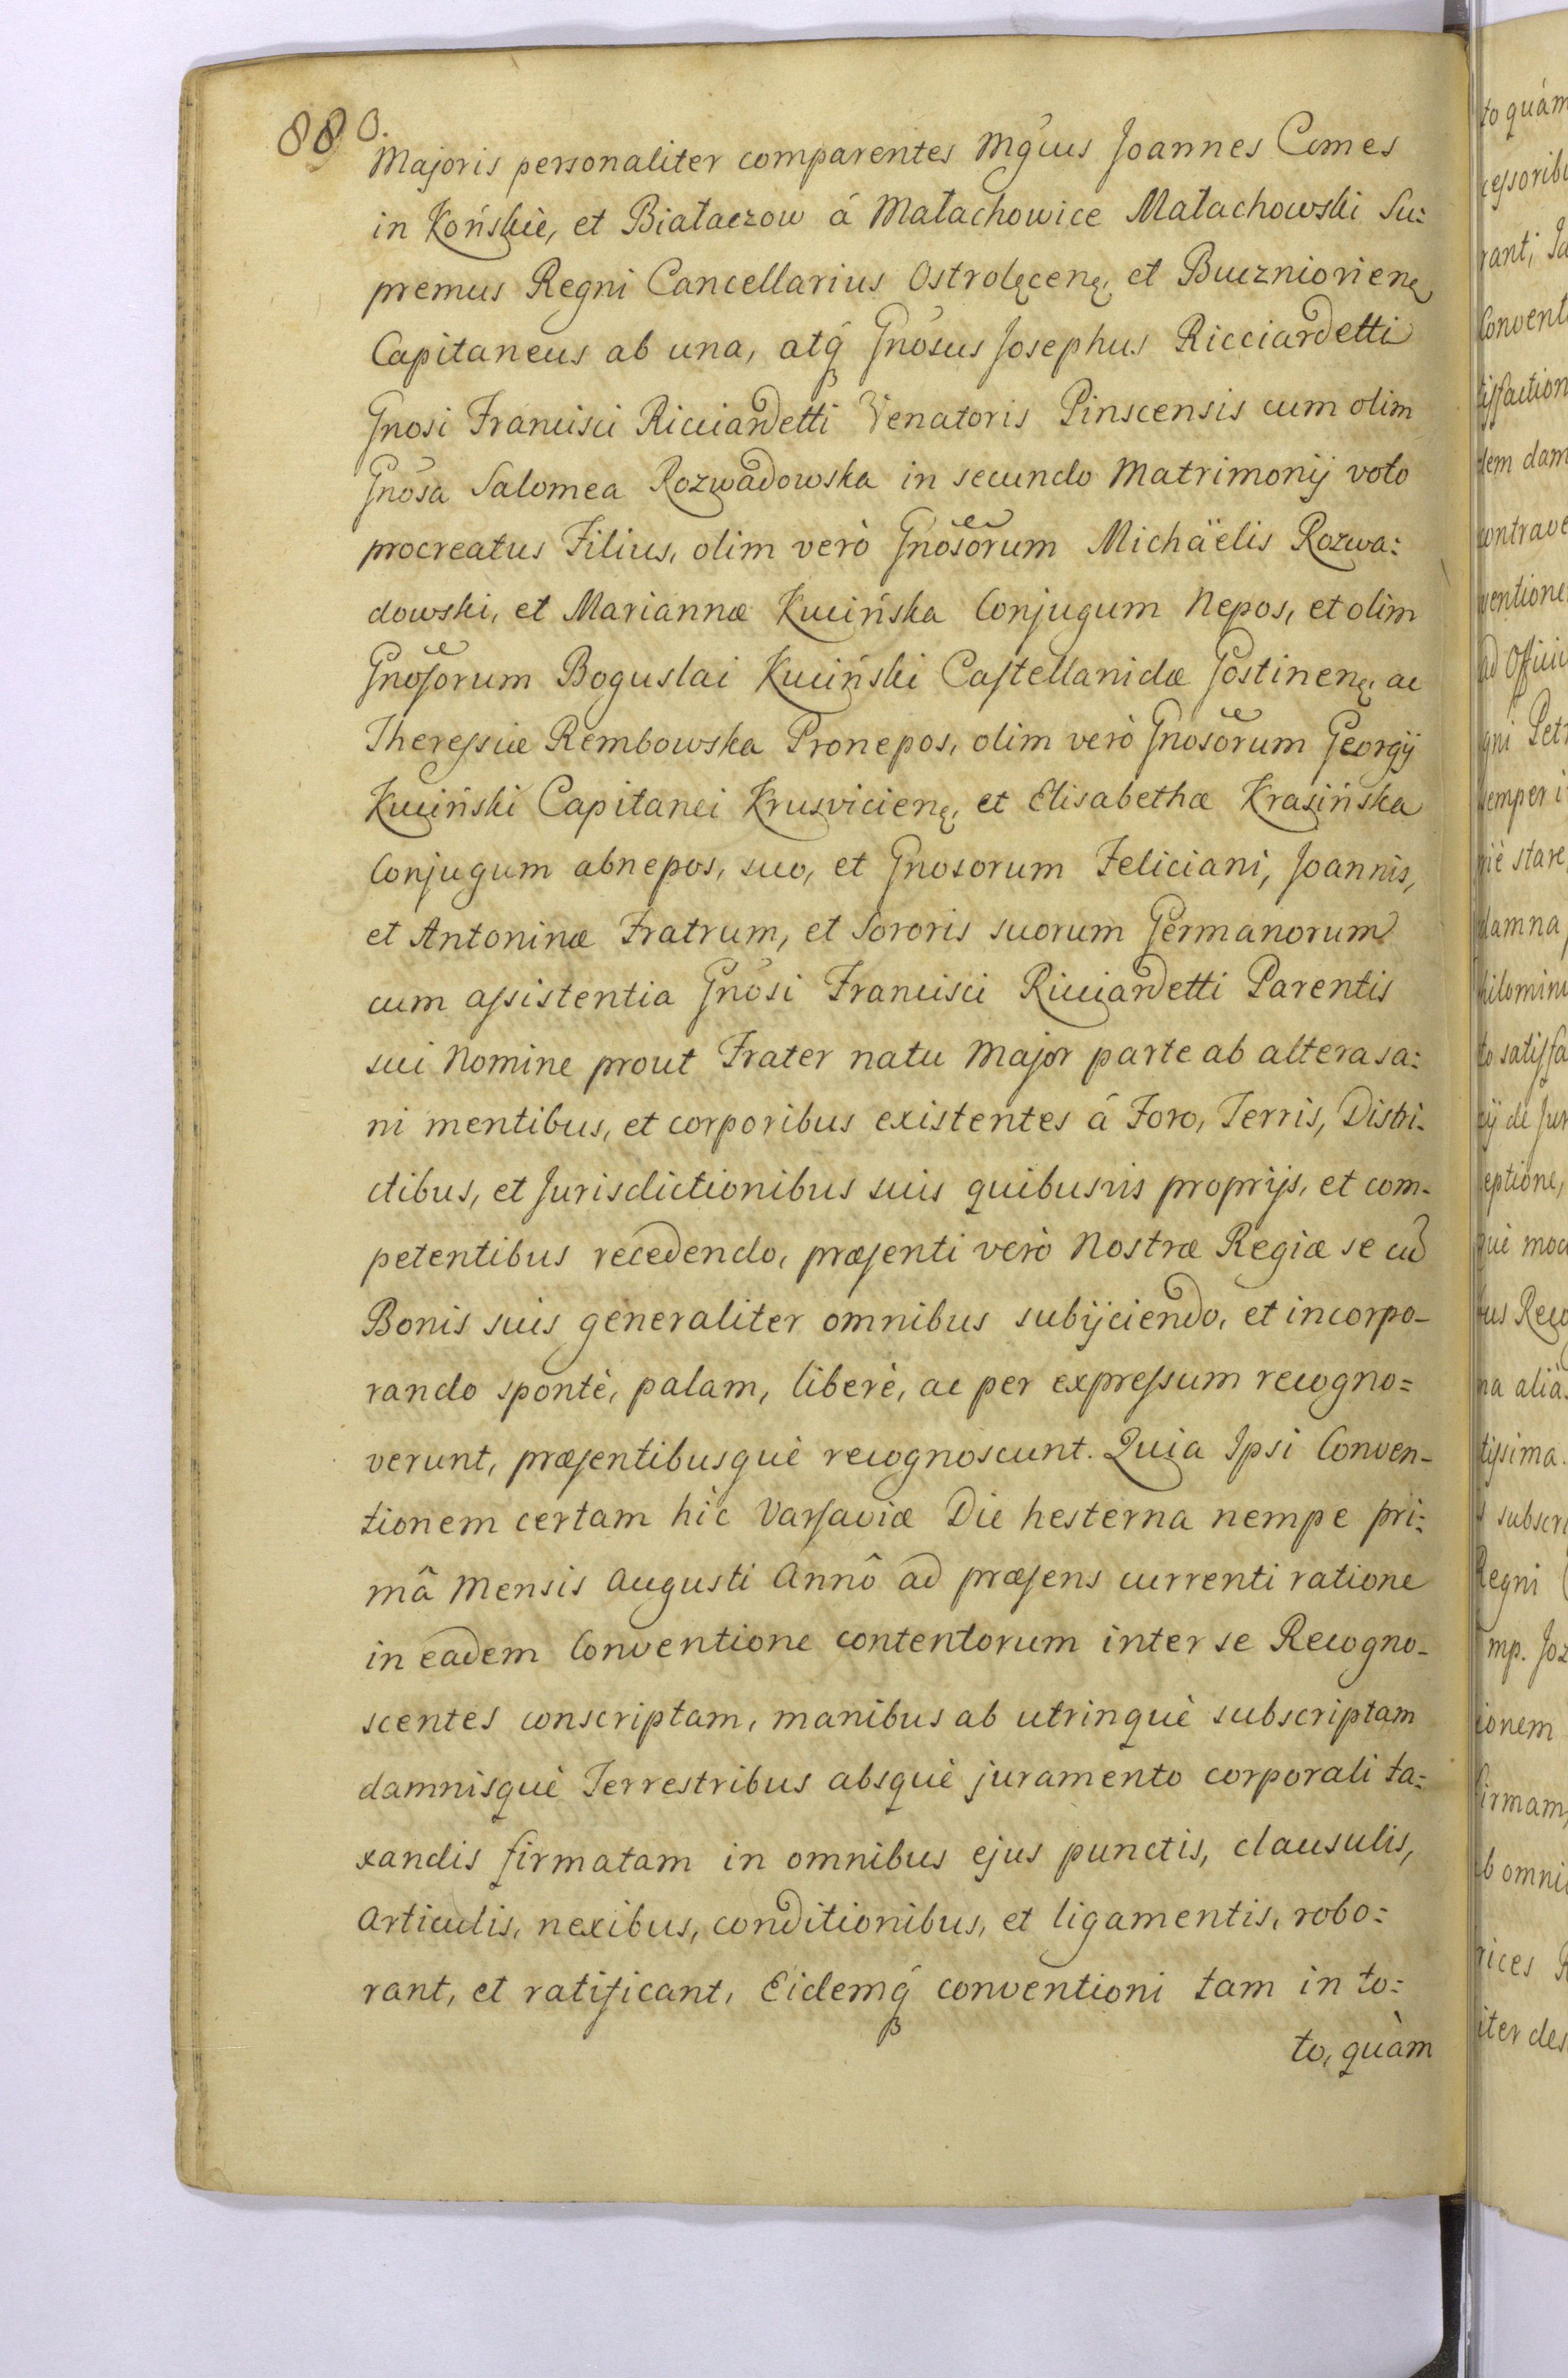 880.
Majoris personaliter comparentes Mg̃cus Joannes Comes
in Końskiè, et Białaczow á Małachowice Małachowski Su:
premus Regni Cancellarius Ostrolęcenę, et Buczniovienę
Capitaneus ab una, atq́ Gnõsus Josephus Ricciardetti
Gnosi Francisci Ricciardetti Venatoris Pinscensis cum olim
Gnõsa Salomea Rozwadowska in secundo Matrimonij voto
procreatus Filius, olim verò Gnõsorum Michäelis Rozwa:
dowski, et Mariannæ Kucińska Conjugum Nepos, et olim
Gnõsorum Boguslai Kuciński Castellanidæ Gostinenę, ac
Theressiæ Rembowska Pronepos, olim verò Gnõsorum Georgij
Kuciński Capitanei Krusvicienę, et Elisabethæ Krasińska
Conjugum abnepos, suo, et Gnosorum Feliciani, Joannis,
et Antoninæ Fratrum, et Sororis suorum Germanorum
cum assistentia Gnõsi Francisci Ricciardetti Parentis
sui Nomine prout Frater natu Major parte ab altera sa:
ni mentibus, et corporibus existentes á Foro, Terris, Distri-
ctibus, et Jurisdictionibus suis quibusvis proprijs, et com-
petentibus recedendo, præsenti verò Nostræ Regiæ se cũ
Bonis suis generaliter omnibus subijciendo, et incorpo-
rando spontè, palam, liberè, ac per expressum recogno=
verunt, præsentibusquè recognoscunt. Quia Ipsi Conven-
tionem certam hìc Varsaviæ Die hesterna nempe pri:
mâ Mensis Augusti Annô ad præsens currenti ratione
in eadem Conventione contentorum inter se Recogno-
scentes conscriptam, manibus ab utrinquè subscriptam
damnisquè Terrestribus absquè juramento corporali ta:
xandis firmatam in omnibus ejus punctis, clausulis,
Articulis, nexibus, conditionibus, et ligamentis, robo:
rant, et ratificant, Eidemq́ conventioni tam in to:
to, quàm